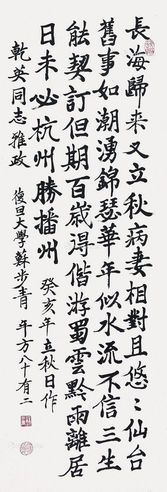 長海歸来又立秋病妻相對且悠〻仙台
舊事如潮湧錦瑟華年似水流不信三生
能契訂但期百歲得偕游蜀雲黔雨離居
日未必杭州勝播州 癸亥年立秋日作
乾英同志雅政 復旦大學蘇步青 年方八十有二